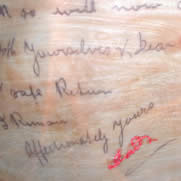 so will now
Yourselves & Dear
safe Return
I Remain
Affectionately Yours